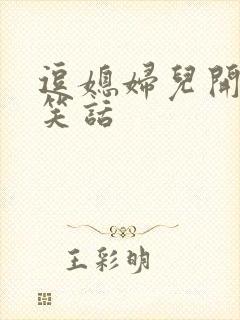 逗媳婦兒開
笑話
王彩明